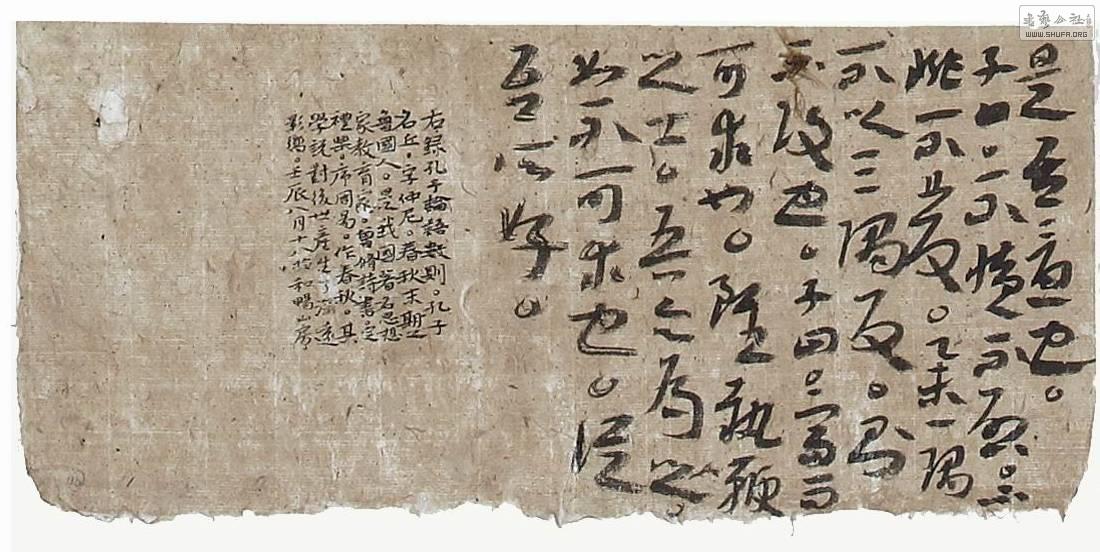 是吾憂也。
子曰。不憤不啟。不
悱不發。舉一隅
不以三隅反。則
不復也。子曰。富而
可求也。雖執鞭
之士。吾亦為之。
如不可求也。從
吾所好。
右錄孔子論語數則。孔子
名丘。字仲尼。春秋末期
魯國人。是我國著名思想
家教育家。曾脩詩書定
禮樂。序周易。作春秋。其
學説對後世產生了深遠
影響。壬辰八月十八於和暢山房
书艺公社
WWW.SHUFA.ORG